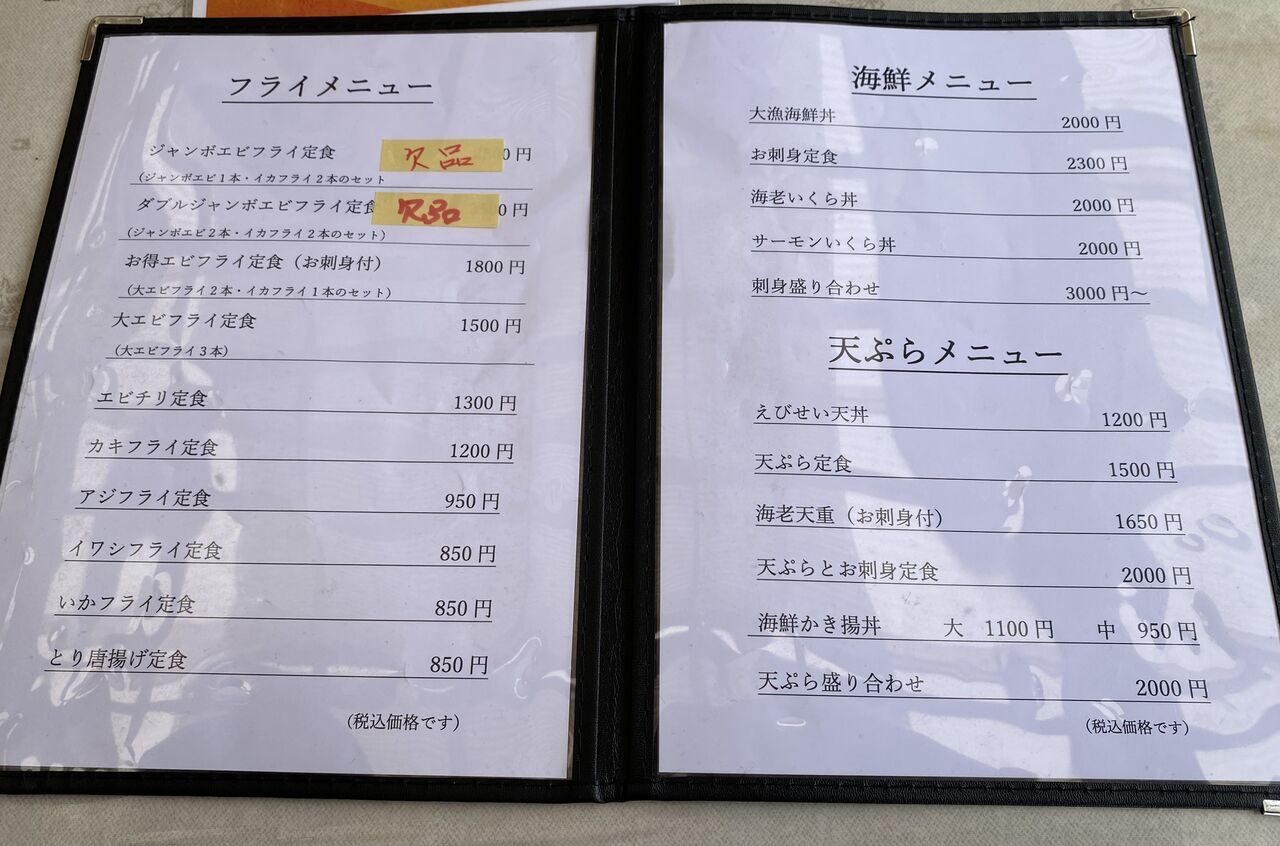 フライメニュー
ジャンボエビフライ定食 欠品 0円
(ジャンボエビ1本・イカフライ2本のセット
ダブルジャンボエビフライ定食 欠品 0円
(ジャンボエビ2本・イカフライ2本のセット)
お得エビフライ定食(お刺身付) 1800円
(大エビフライ2本・イカフライ1本のセット)
大エビフライ定食 1500円
(大エビフライ3本)
エビチリ定食 1300円
カキフライ定食 1200円
アジフライ定食 950円
イワシフライ定食 850円
いかフライ定食 850円
とり唐揚げ定食 850円
(税込価格です)
海鮮メニュー
大漁海鮮丼 2000円
お刺身定食 2300円
海老いくら丼 2000円
サーモンいくら丼 2000円
刺身盛り合わせ 3000円～
天ぷらメニュー
えびせい天丼 1200円
天ぷら定食 1500円
海老天重(お刺身付) 1650円
天ぷらとお刺身定食 2000円
海鮮かき揚丼 大 1100円 中 950円
天ぷら盛り合わせ 2000円
(税込価格です)